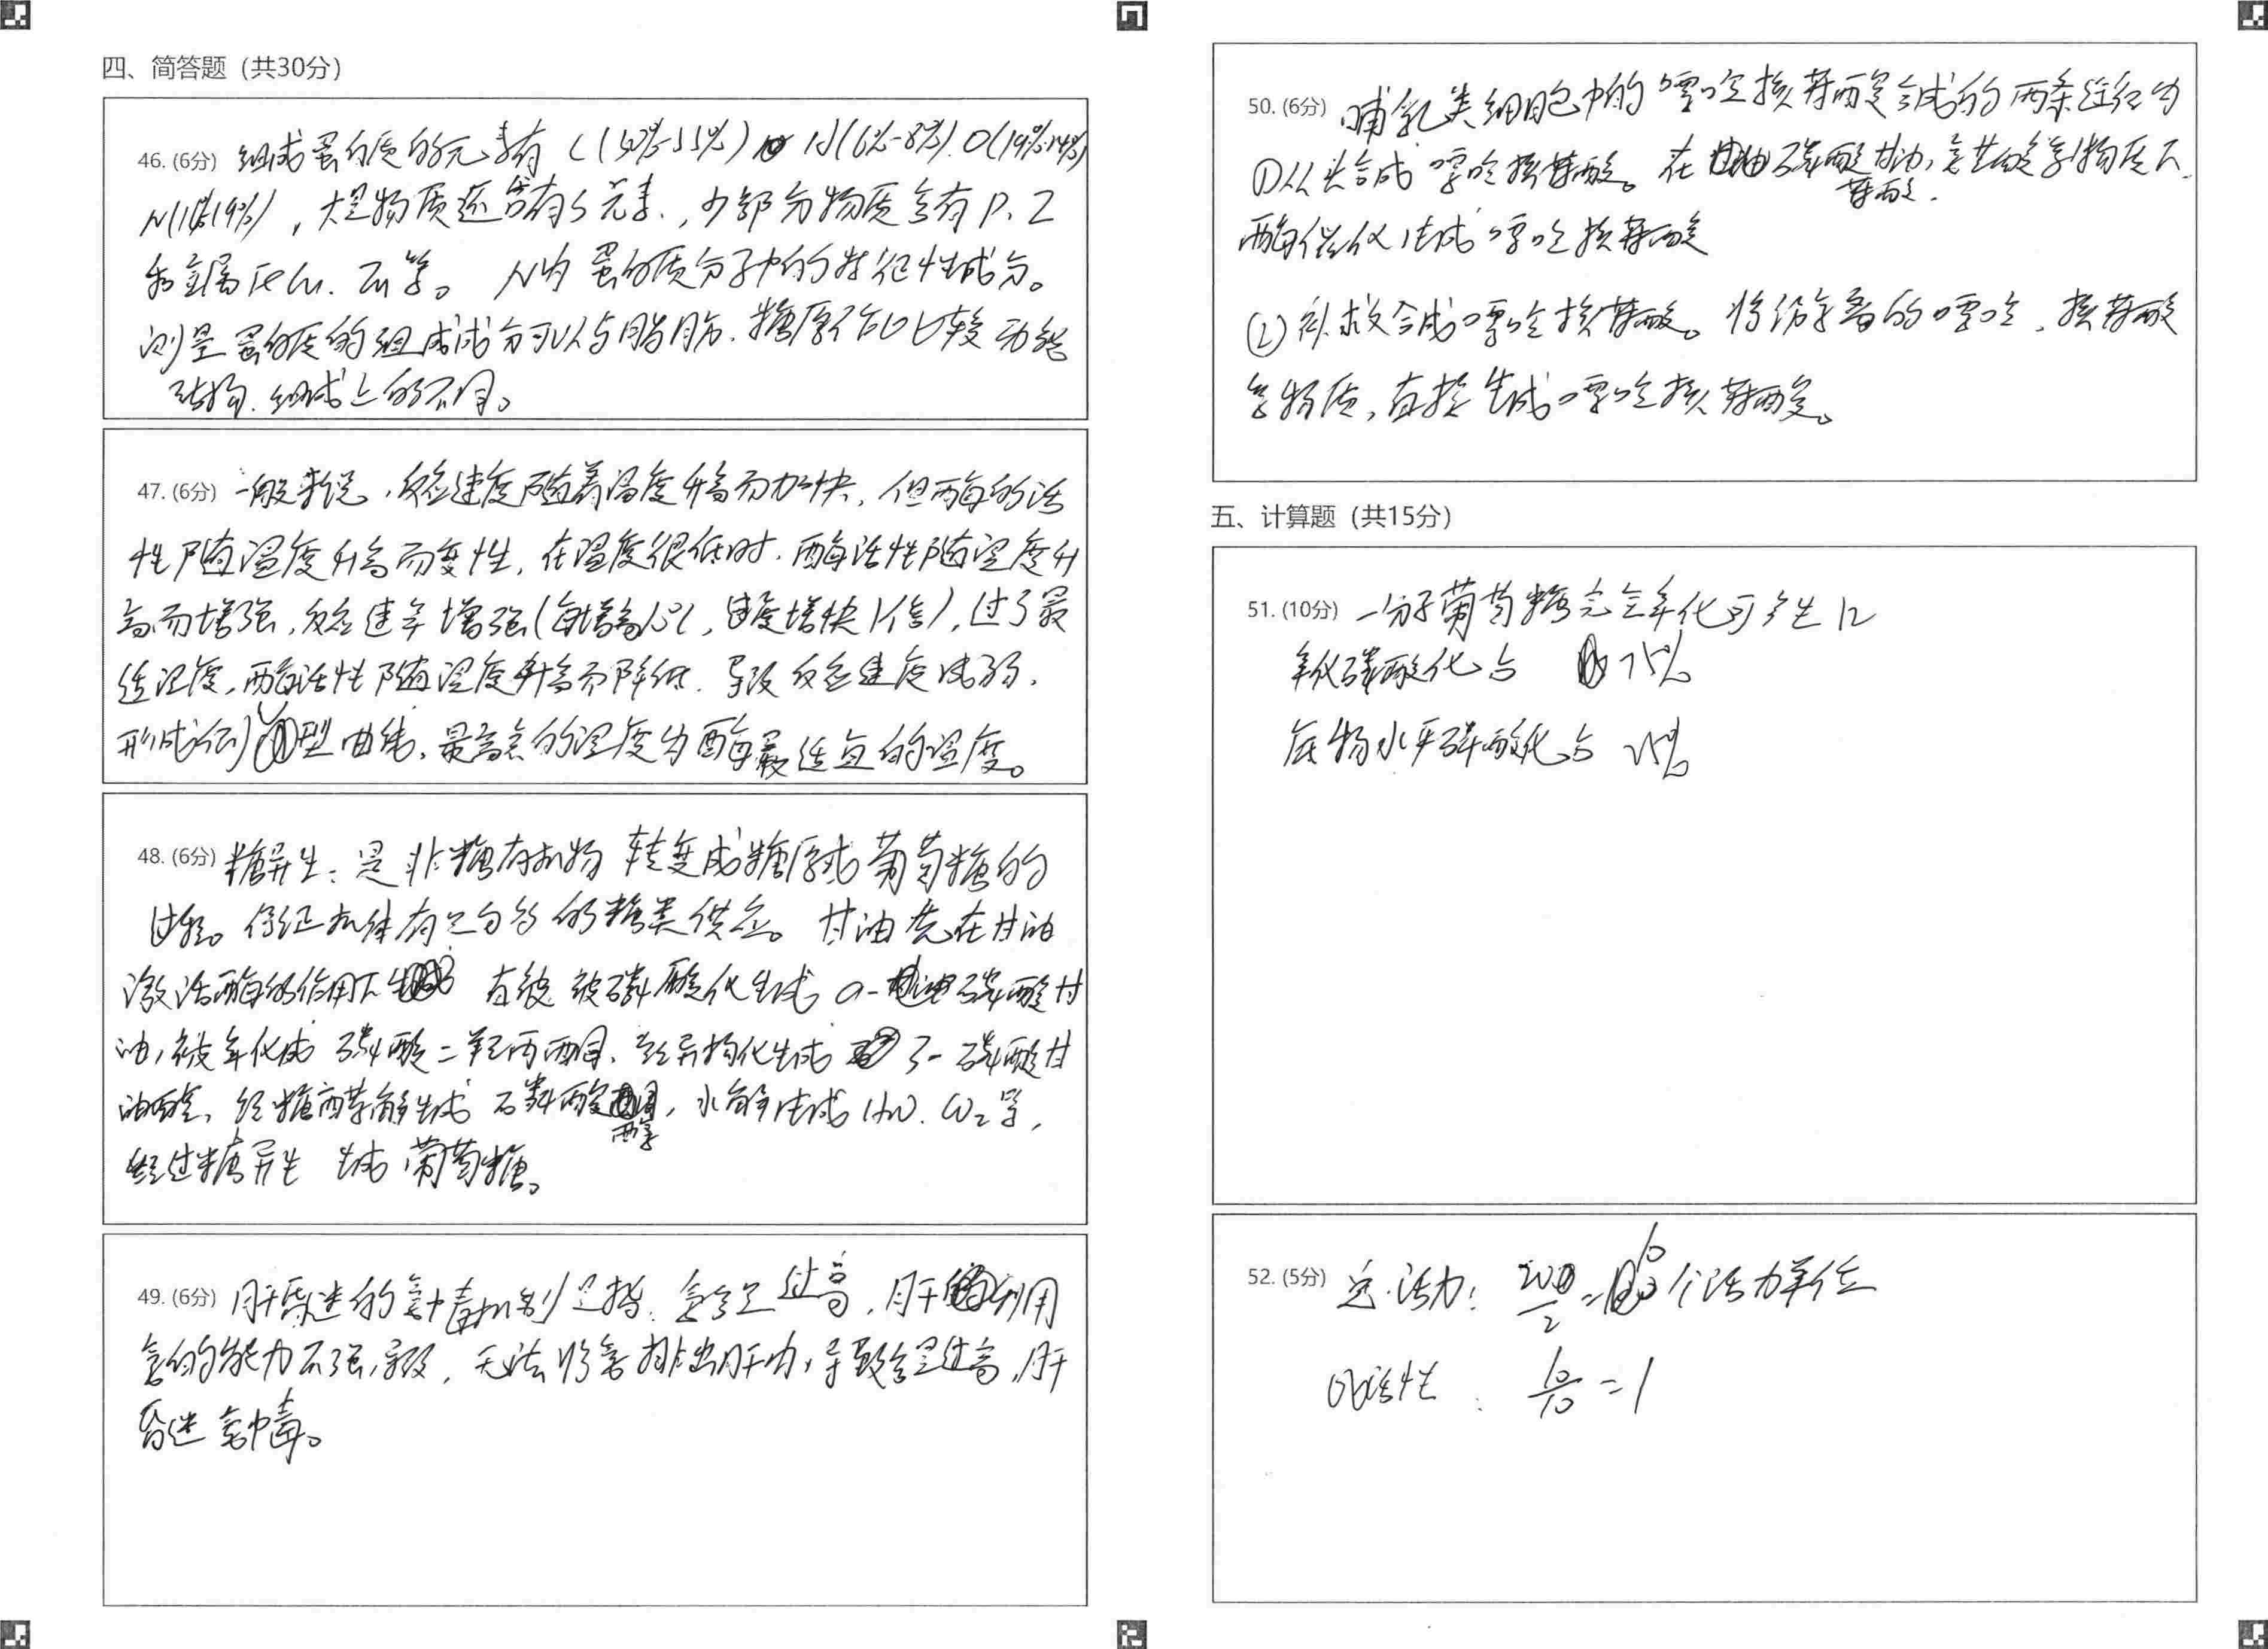 四、简答题（共30分）
46. (6分) 组成蛋白质的元素有 C(50%-55%) H(6%-8%). O(19%-24%)
N(13%-19%)，大量物质还含有S元素，少部分物质含有P、I
和金属Fe Cu. Zn等。N为蛋白质分子中的特征性成分。
测量蛋白质的组成成分可以与脂肪.糖原作出比较功能
结构.组成上的不同。
47. (6分) 一般来说，反应速度随着温度升高而加快，但酶的活
性随温度升高而变性，在温度很低时，酶活性随温度升
高而增强，反应速率增强(每增高10℃，速度增快1倍)，过了最
适温度，酶活性随温度升高而降低，导致反应速度减弱，
形成倒U型曲线，最高点的温度为酶最适宜的温度。
48. (6分) 糖异生：是非糖有机物转变成糖原或葡萄糖的
过程。保证机体有足够的糖类供应。甘油先在甘油
激活酶的作用下 被磷酸化生成 α-磷酸甘
油，被氧化成磷酸二羟丙酮，经异构化生成 3-磷酸甘
油醛，经糖酵解生成磷酸，水解生成H2O. CO2等，
经过糖异生 生成 葡萄糖。
49. (6分) 肝昏迷的氨中毒机制是指，氨含量过高，肝利用
氨的能力不强，导致，无法将氨排出肝内，导致含量过高，肝
昏迷氨中毒。
50. (6分) 哺乳类细胞中的嘌呤核苷酸合成的两条途径为
①从头合成嘌呤核苷酸。在磷酸甘油，氨基酸等物质下
苷酸.
酶催化生成嘌呤核苷酸
②补救合成嘌呤核苷酸。将的嘌呤，核苷酸
等物质，直接生成嘌呤核苷酸。
五、计算题（共15分）
51. (10分) 一分子葡萄糖完全氧化可产生12
氧化磷酸化占 75%
底物水平磷酸化占 25%
52. (5分) 总活力：200/2=10个活力单位
比活性：10/10=1